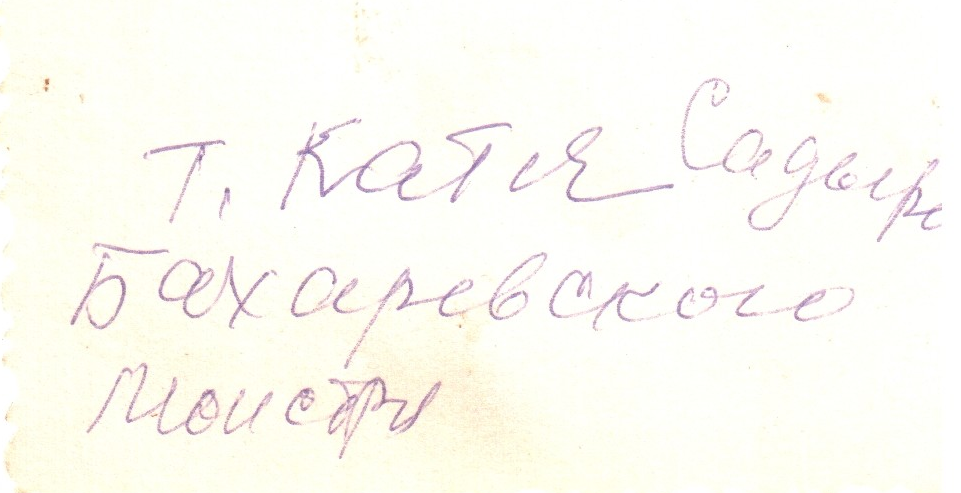 т. Катя Садыре
Бахаревского
монстр